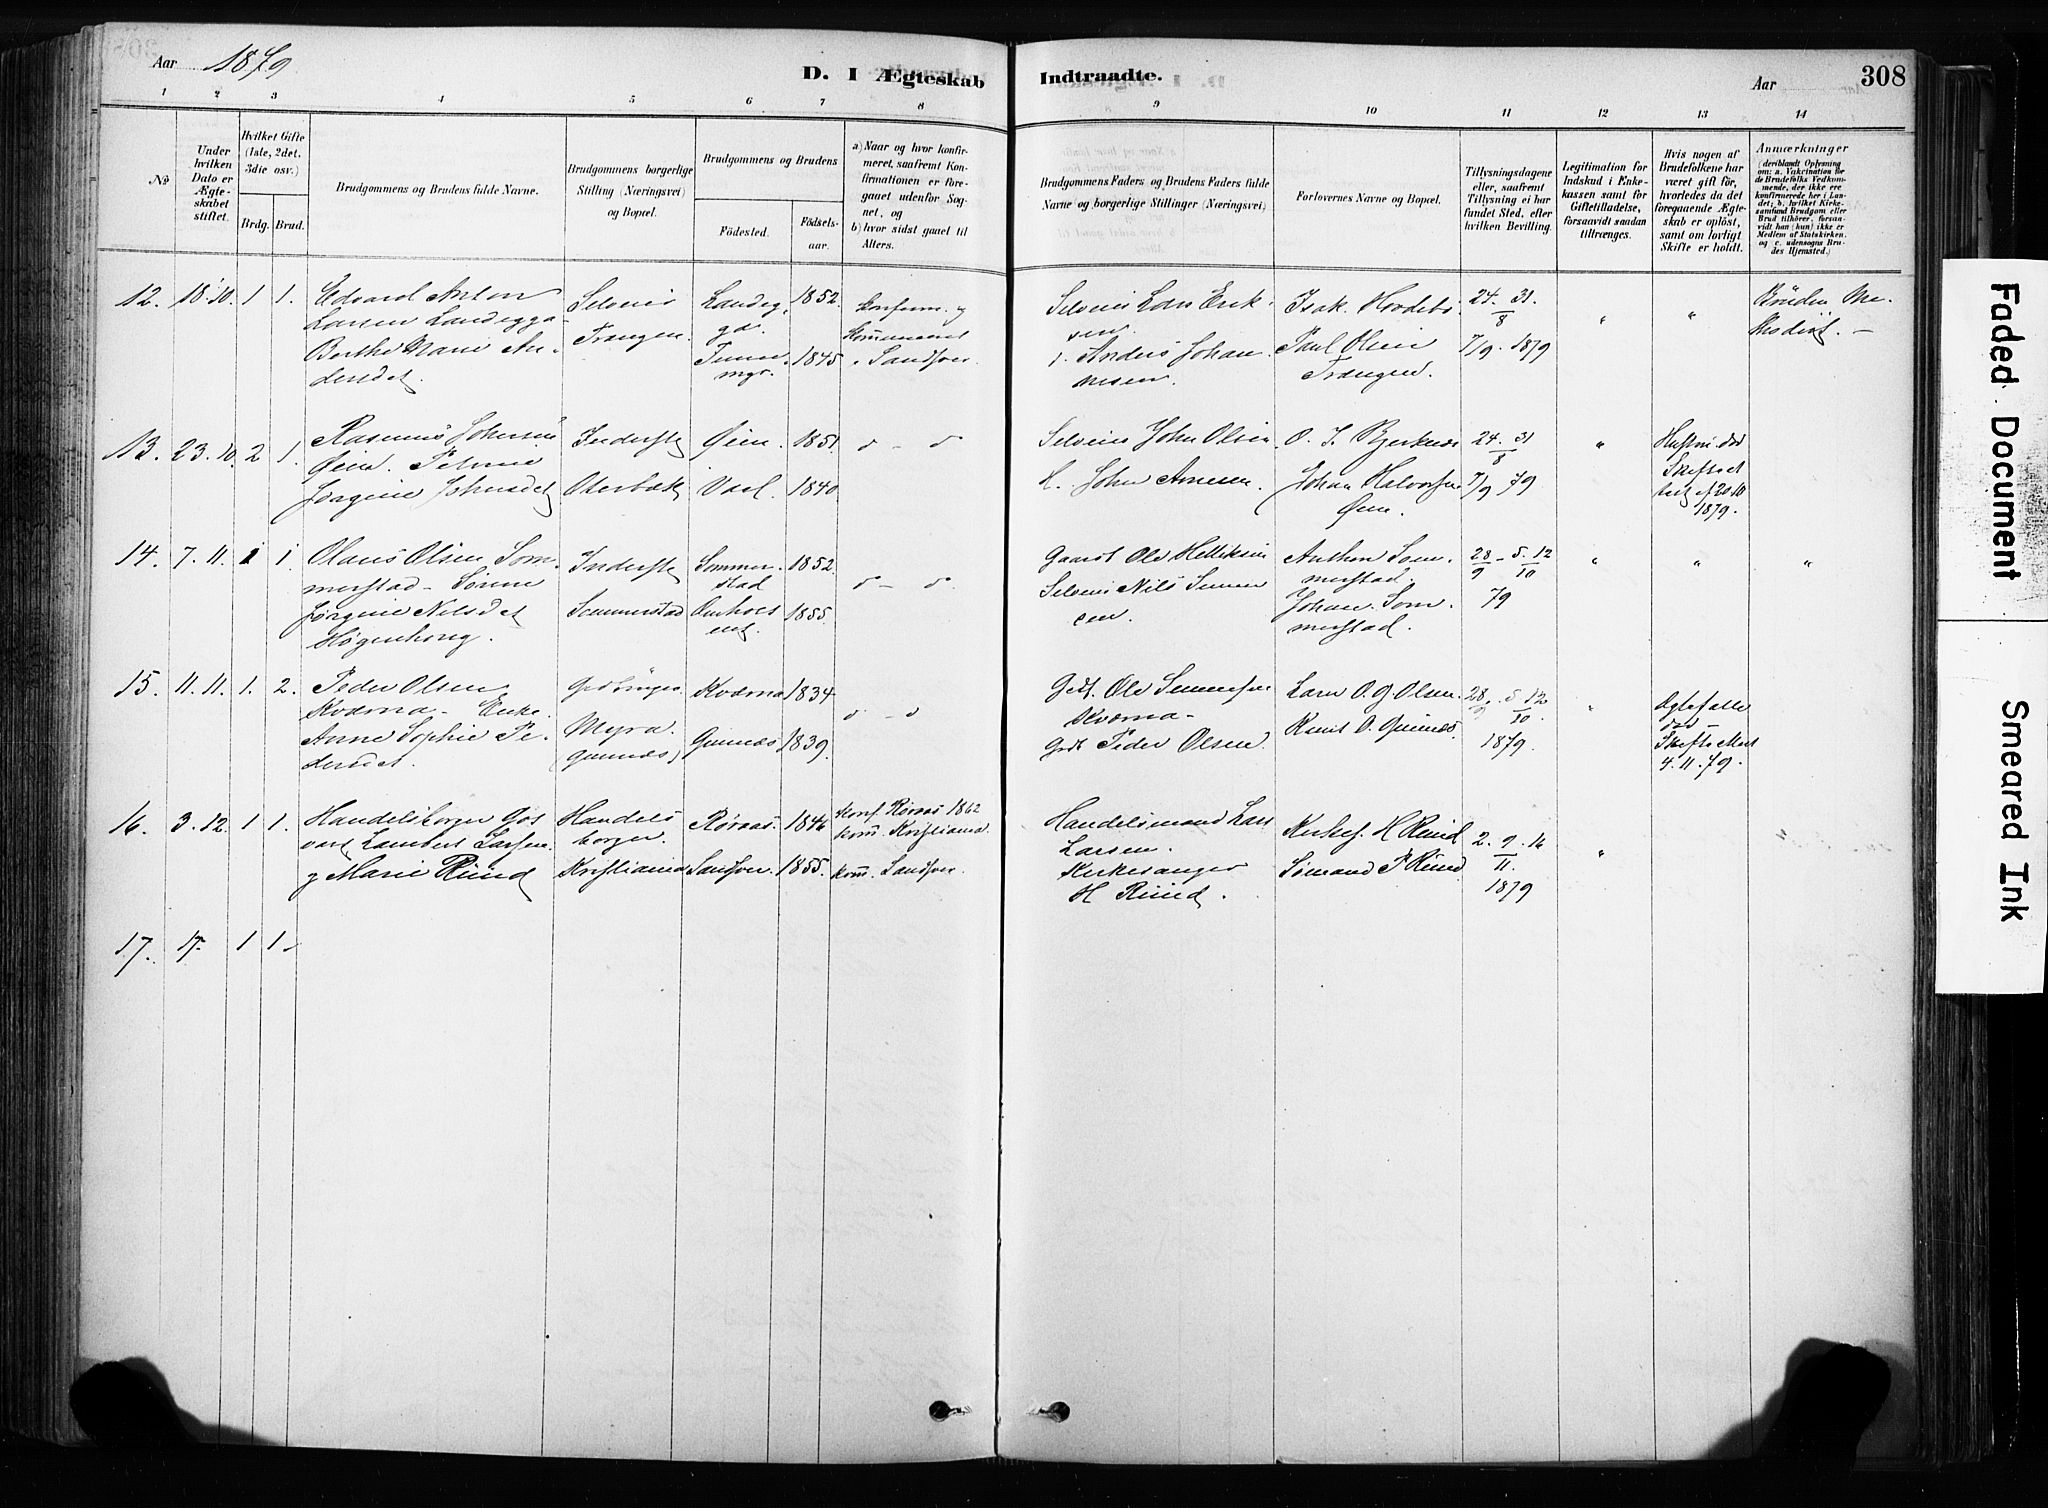 Aar 1879
D. I Ægteskab Indtraadte.
Aar 308
1 2 3 4 5 6 7 8 9 10 11 12 13 14
No
Under hvilken Dato er Ægteskabet stiftet.
Hvilket Gifte (1ste, 2det, 3die osv.)
Brdg. Brud.
Brudgommens og Brudens fulde Navne.
Brudgommens borgerlige Stilling (Næringsvei) og Bopæl.
Brudgommens og Brudens
Födested.
Födselsaar.
a) Naar og hvor konfirmeret, saafremt Konfirmationen er foregaaet udenfor Sognet, og
b) hvor sidst gaaet til Alters.
Brudgommens Faders og Brudens Faders fulde Navne og borgerlige Stillinger (Næringsvei)
Forlovernes Navne og Bopæl.
Tillysningsdagene eller, saafremt Tillysning ei har fundet Sted, efter hvilken Bevilling.
Legitimation for Indskud i Enkekassen samt for Giftetilladelse, forsaavidt saadan tiltrænges.
Hvis nogen af Brudefolkene har været gift för, hvorledes da det foregaaende Ægteskab er oplöst, samt om lovligt Skifte er holdt.
Anmærkninger
(deriblandt Oplysning om: a. Vakcination for de Brudefolks Vedkommende, der ikke ere konfirmerede her i Landet; b. hvilket Kirkesamfund Brudgom eller Brud tilhörer, forsaavidt han (hun) ikke er Medlem af Statskirken. og c. udensogns Brudes Hjemsted.)
12. 18.10. 1 1.
Edvard Anton
Larsen Landegga
Berthe Marie An-
dersdet.
Selveier
Trangen.
1852.
1845
Konfirm. og
Sandsver.
Selveier Lars Erik-
sen
Anders Johan-
nesen.
Isak
Paul Olsen
Trangen.
24. 31.
8
7/9. 1879
"
"
Bruden Me-
thodist. —
13. 23.10. 2 1.
Rasmus Johnsen
Øien. Petrine
Jørgine Johnsdet
Inderst
Øien
Vael.
1851.
1840
do — do
Selveier John Olsen
John Arnesen.
O. J. Bjerknes
Johan Halvorsen
Øien.
24. 31
8
7/9 79
"
Hustru død
Skifteat-
test af 20.10
1879.
14. 7. 11. 1 1.
Olaus Olsen Som-
merstad — Sørine
Jørgine Nilsdet
Inderst
Sommerstad
Sommer-
stad
1852.
1855.
do — do.
Gaardbr. Ole Helliksen
Selveier Nils Simen-
sen.
Anthon Som-
merstad.
Johan Som-
merstad.
28 — 5. 12
9 10
79
"
"
"
15. 11. 11. 1. 2.
Peder Olsen
Kværna — Enke
Anne Sophie Pe-
dersdet.
Myra.
Kværna
1834.
1839.
do — do
Gdbr. Ole Simensen
Kværna —
Gdbr Peder Olsen
Lars O. G. Olsen.
Knut O.
28. 5. 12
9 10.
1879.
"
Ægtefælle
død —
Skifte Attest
4. 11. 79.
16. 3. 12. 1 1.
Handelsborger Gos-
vart Lambert Larsen
og Marie Ruud
Handels
borger.
Kristiania
Røraas.
Sandsver.
1846
1855.
Konf. Røraas 1862
kom. Kristiania.
kom. Sandsver.
Handelsmand Lars
Larsen.
Kirkesanger
H Ruud.
Kirkes. H Ruud
Sømand P Ruud
2. 9. 16
11.
1879
"
17. 17. 1 1.
Faded Document
Smeared Ink